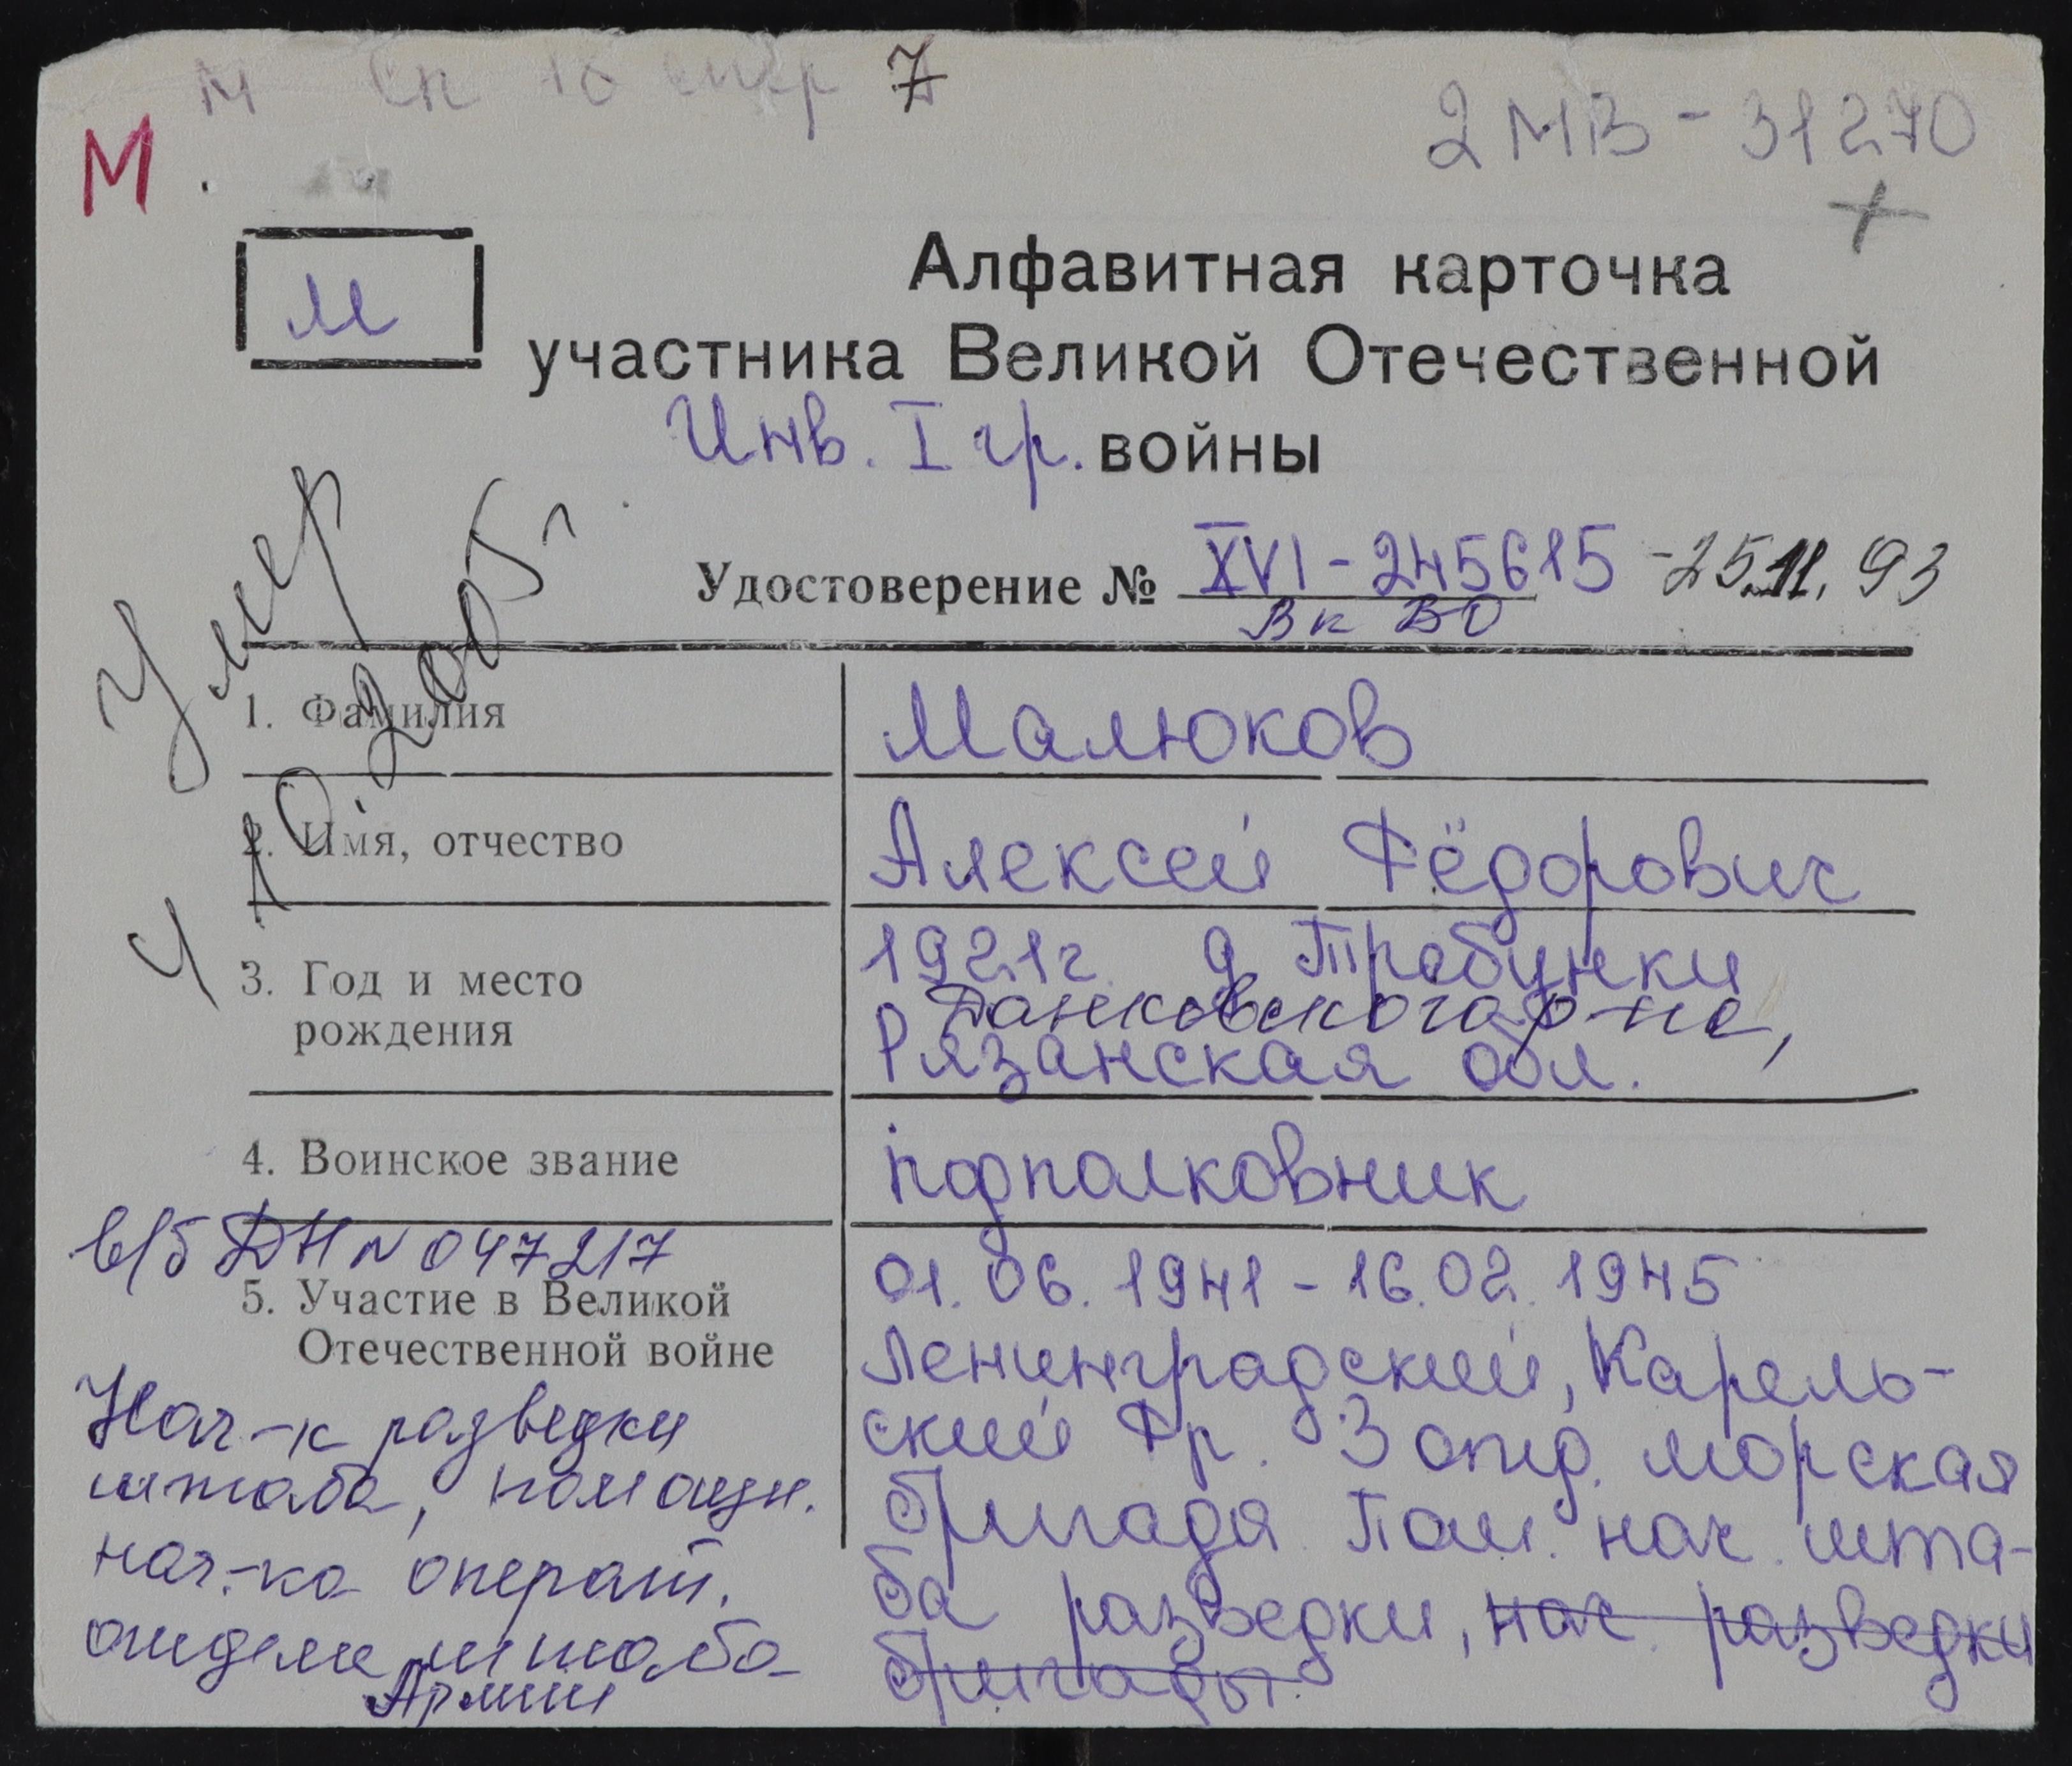 7
2 МВ - 31270
М
+
м
Алфавитная карточка
участника Великой Отечественной
Инв. I гр. войны
Удостоверение № XVI - 245615 - 25.11.93
Вк ВО
Умер
4 10. 2005 г
1. Фамилия Малюков
2. Имя, отчество Алексей Фёдорович
3. Год и место рождения
1921 г. д. Требунки
Данковского р-на,
Рязанская обл.
4. Воинское звание подполковник
в/б ДН N 047217
5. Участие в Великой
Отечественной войне
01.06.1941 - 16.02.1945
Ленинградский, Карель-
ский Фр. 3 отд. морская
бригада Пом. нач. шта-
ба разведки, нач. разведки
бригады
Нач-к разведки
штаба, помощн.
нач.-ка операт.
отдела штаба
Армии